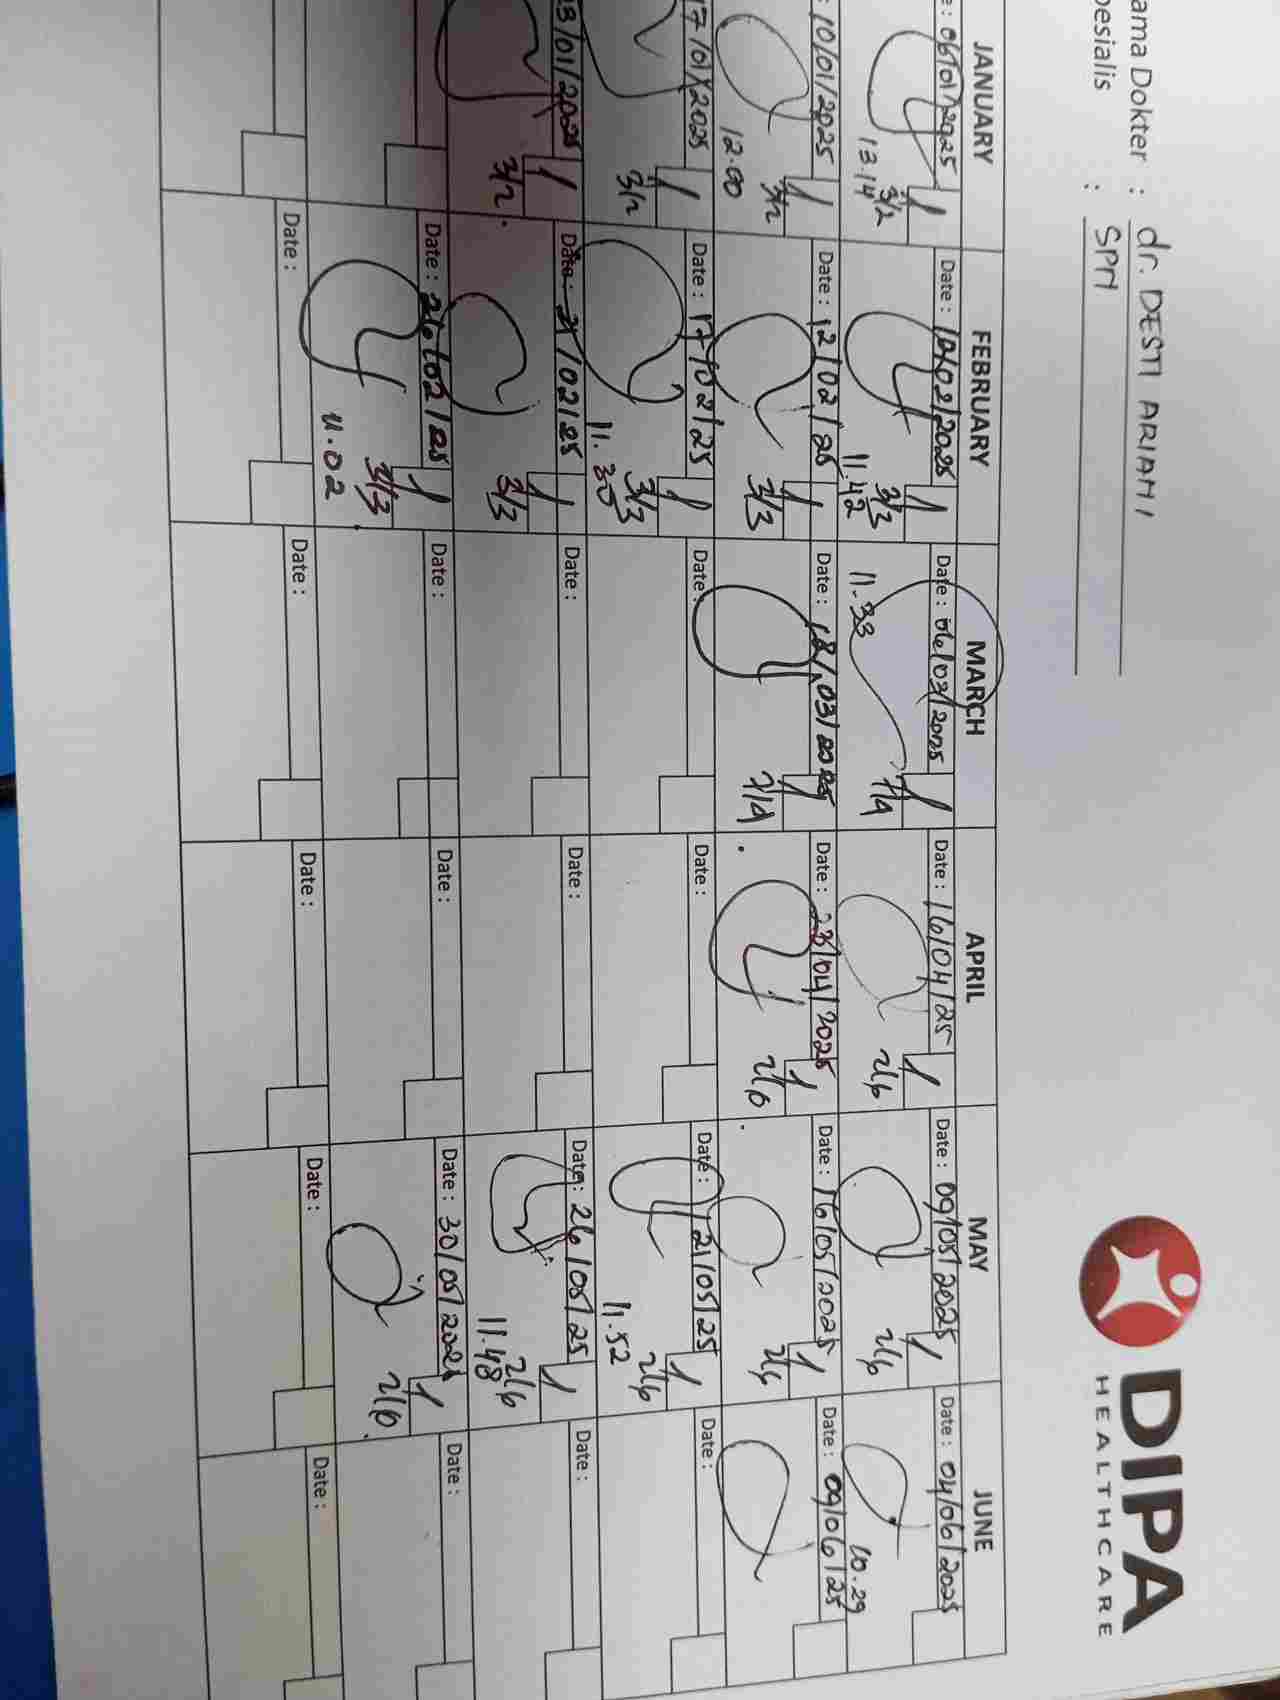 DIPA
HEALTHCARE
ama Dokter : dr. DESTI ARIANI
pesialis : SPM
JANUARY FEBRUARY MARCH APRIL MAY JUNE
e: 06/01/2025 Date : 10/02/2025 Date : 06/03/2025 Date : 16/04/25 Date : 09/05/2025 Date : 04/06/2025
13.14 3/2 11.42 3/3 11.33 7/4 2/6 2/6 10.29
: 10/01/2025 Date : 12/02/25 Date : 18/03/2025 Date : 23/04/2025 Date : 16/05/2025 Date : 09/06/25
12.00 3/2 3/3 7/4 2/6 2/6
17/01/2025 Date : 17/02/25 Date : Date : Date : 21/05/25 Date :
3/2 11.30 3/3 11.52 2/6
23/01/2025 Date : 21/02/25 Date : Date : Date : 26/05/25 Date :
3/2 3/3 11.48 2/6
Date : 26/02/25 Date : Date : Date : 30/05/2025 Date :
11.02 3/3 2/6
Date : Date : Date : Date : Date :